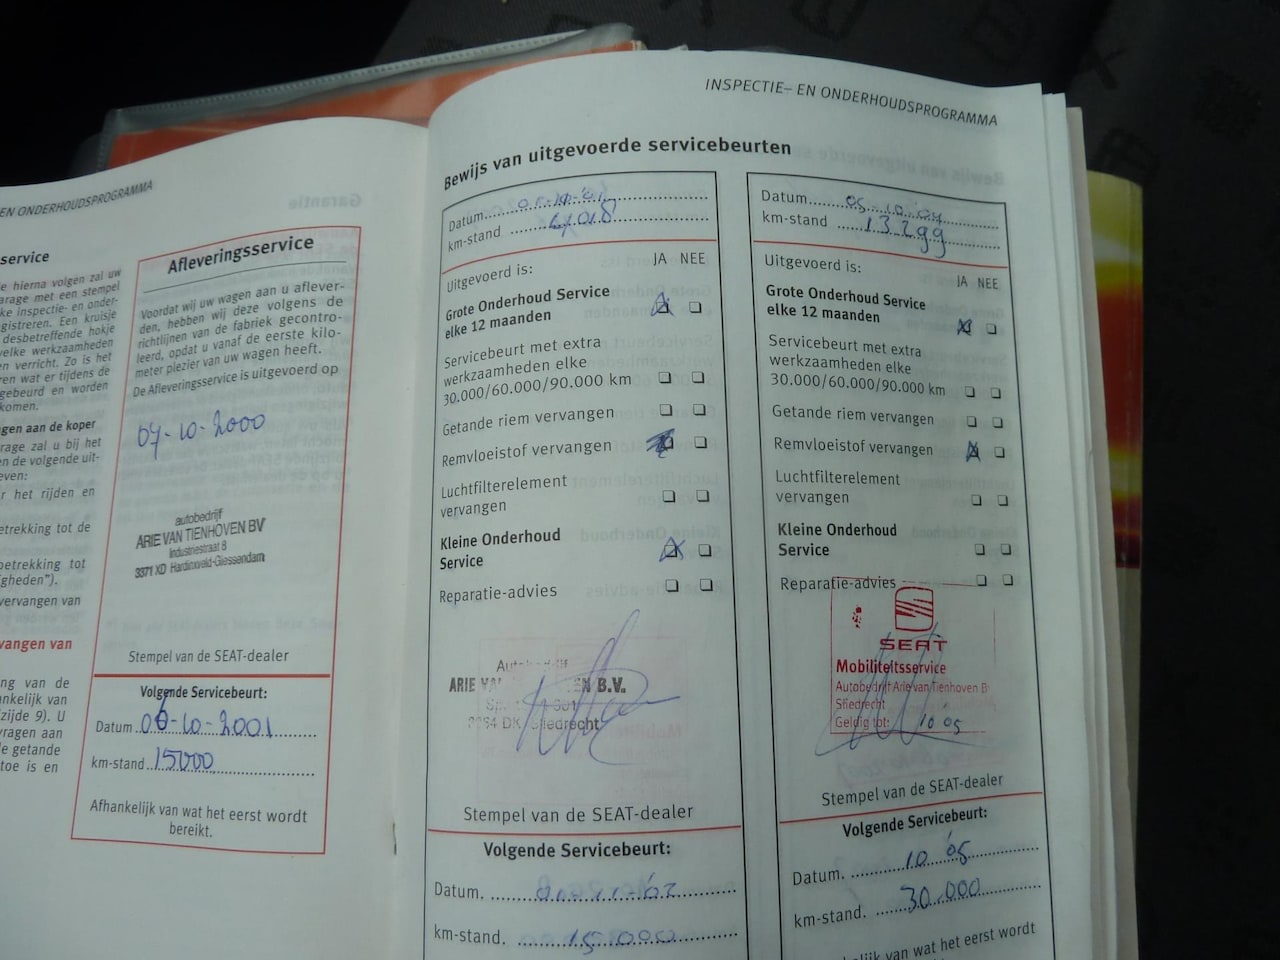 EN ONDERHOUDSPROGRAMMA
service
e hierna volgen zal uw
arage met een stempel
ke inspectie- en onder-
gistreren. Een kruisje
desbetreffende hokje
welke werkzaamheden
n verricht. Zo is het
ren wat er tijdens de
gebeurd en worden
komen.
gen aan de koper
rage zal u bij het
en de volgende uit-
even:
r het rijden en
etrekking tot de
betrekking tot
igheden").
vervangen van
vangen van
ng van de
nkelijk van
zijde 9). U
vragen aan
le getande
toe is en
Afleveringsservice
Voordat wij uw wagen aan u aflever-
den, hebben wij deze volgens de
richtlijnen van de fabriek gecontro-
leerd, opdat u vanaf de eerste kilo-
meter plezier van uw wagen heeft.
De Afleveringsservice is uitgevoerd op
04-10-2000
autobedrijf
ARIE VAN TIENHOVEN BV
Industriestraat 8
3371 XD Hardinxveld-Giessendam
Stempel van de SEAT-dealer
Volgende Servicebeurt:
Datum 06-10-2001
km-stand 15000
Afhankelijk van wat het eerst wordt
bereikt.
INSPECTIE- EN ONDERHOUDSPROGRAMMA
Bewijs van uitgevoerde servicebeurten
Datum
km-stand
Uitgevoerd is: JA NEE
Grote Onderhoud Service
elke 12 maanden
Servicebeurt met extra
werkzaamheden elke
30.000/60.000/90.000 km
Getande riem vervangen
Remvloeistof vervangen
Luchtfilterelement
vervangen
Kleine Onderhoud
Service
Reparatie-advies
Autobedrijf
ARIE VAN TIENHOVEN B.V.
DK Sliedrecht
Stempel van de SEAT-dealer
Volgende Servicebeurt:
Datum.
km-stand. 15.000
Datum 05-10-04
km-stand 13299
Uitgevoerd is:
JA NEE
Grote Onderhoud Service
elke 12 maanden
Servicebeurt met extra
werkzaamheden elke
30.000/60.000/90.000 km
Getande riem vervangen
Remvloeistof vervangen
Luchtfilterelement
vervangen
Kleine Onderhoud
Service
Reparatie-advies
SEAT
Mobiliteitsservice
Autobedrijf Arie van Tienhoven B
Sliedrecht
Geldig tot: 10 '05
Stempel van de SEAT-dealer
Volgende Servicebeurt:
Datum. 10 '05
km-stand. 30.000
elijk van wat het eerst wordt